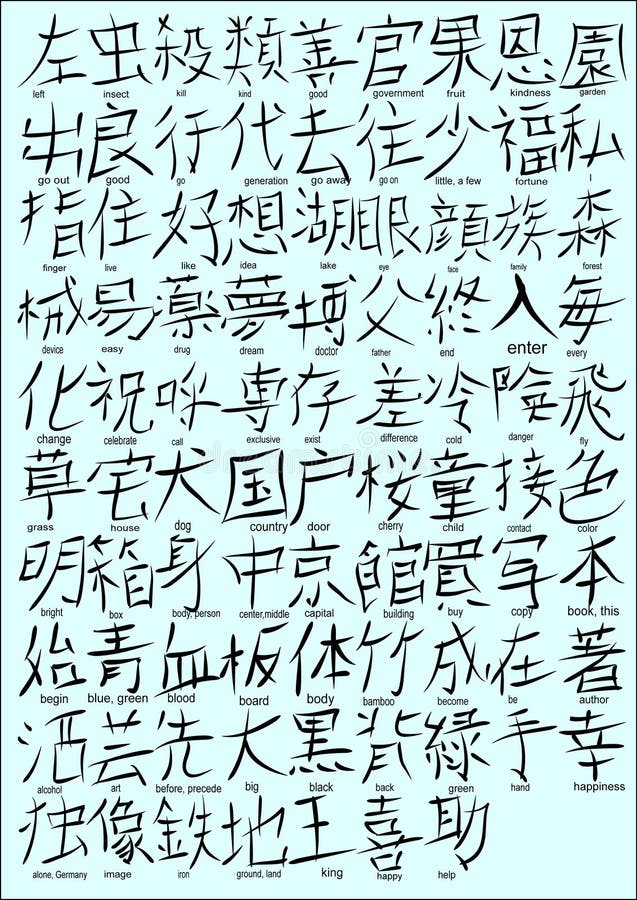 左 虫 殺 類 善 官 果 恩 園
left insect kill kind good government fruit kindness garden
出 良 行 代 去 住 少 福 私
go out good go generation go away go on little, a few fortune I
指 住 好 想 湖 眼 顔 族 森
finger live like idea lake eye face family forest
械 易 薬 夢 博 父 終 入 毎
device easy drug dream doctor father end enter every
化 祝 呼 専 存 差 冷 険 飛
change celebrate call exclusive exist difference cold danger fly
草 宅 犬 国 户 桜 童 接 色
grass house dog country door cherry child contact color
明 箱 身 中 京 館 買 写 本
bright box body, person center,middle capital building buy copy book, this
始 青 血 板 体 竹 成 在 著
begin blue, green blood board body bamboo become be author
酒 芸 先 大 黒 背 緑 手 幸
alcohol art before, precede big black back green hand happiness
独 像 鉄 地 王 喜 助
alone, Germany image iron ground, land king happy help